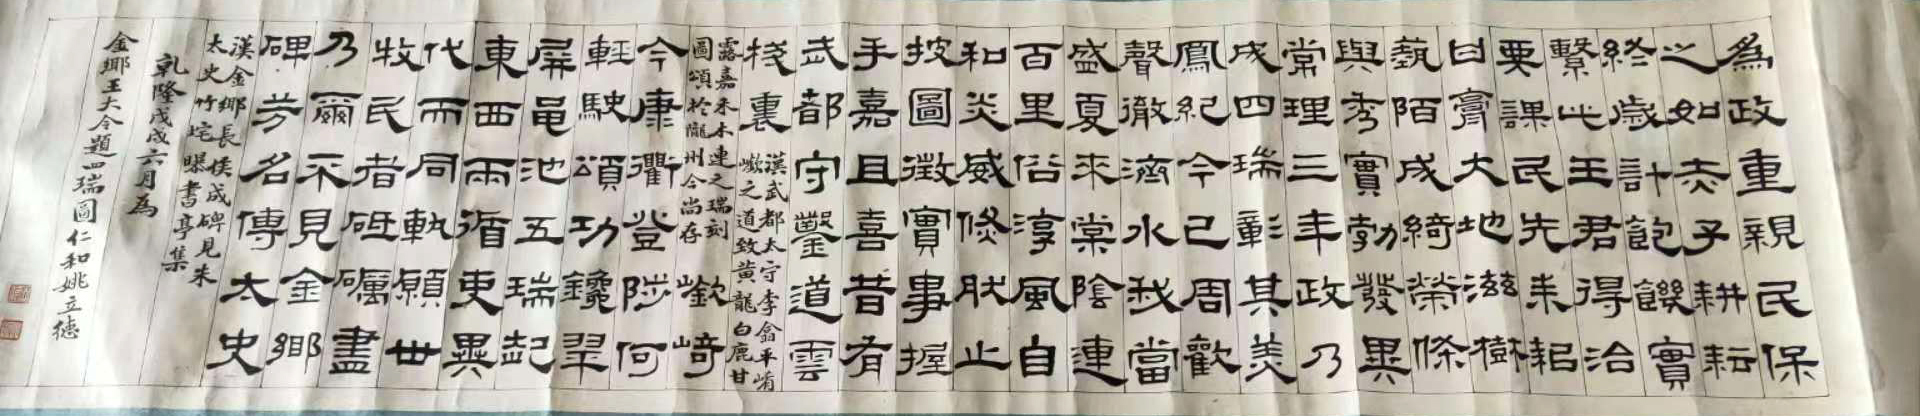 為政重親民保
之如赤子耕耘
終歲計飽饑實
繫此王君得治
要課民先耒耜
日膏大地滋樹
藝陌成綺榮條
與秀實勃發異
常理三年政乃
成四瑞彰其美
鳳紀今已周歡
聲徹濟水我當
盛夏來棠陰連
百里俗淳風自
和炎威倏肰止
披圖徵實事握
手嘉且喜昔有
武都守鑿道雲
棧裏
漢武都太守李翕平崤
嶔之道致黃龍白鹿甘
露嘉禾木連之瑞刻
圖頌於隴州今尚存
嶔崎
今康衢登陟何
輕駛頌功鑱翠
屏黽池五瑞起
東西兩循吏異
代而同軌願世
牧民者砥礪盡
乃爾不見金鄉
碑芳名傳太史
漢金鄉長侯成碑見朱
太史竹垞曝書亭集
乾隆戊戌六月為
金鄉王大令題四瑞圖 仁和姚立德